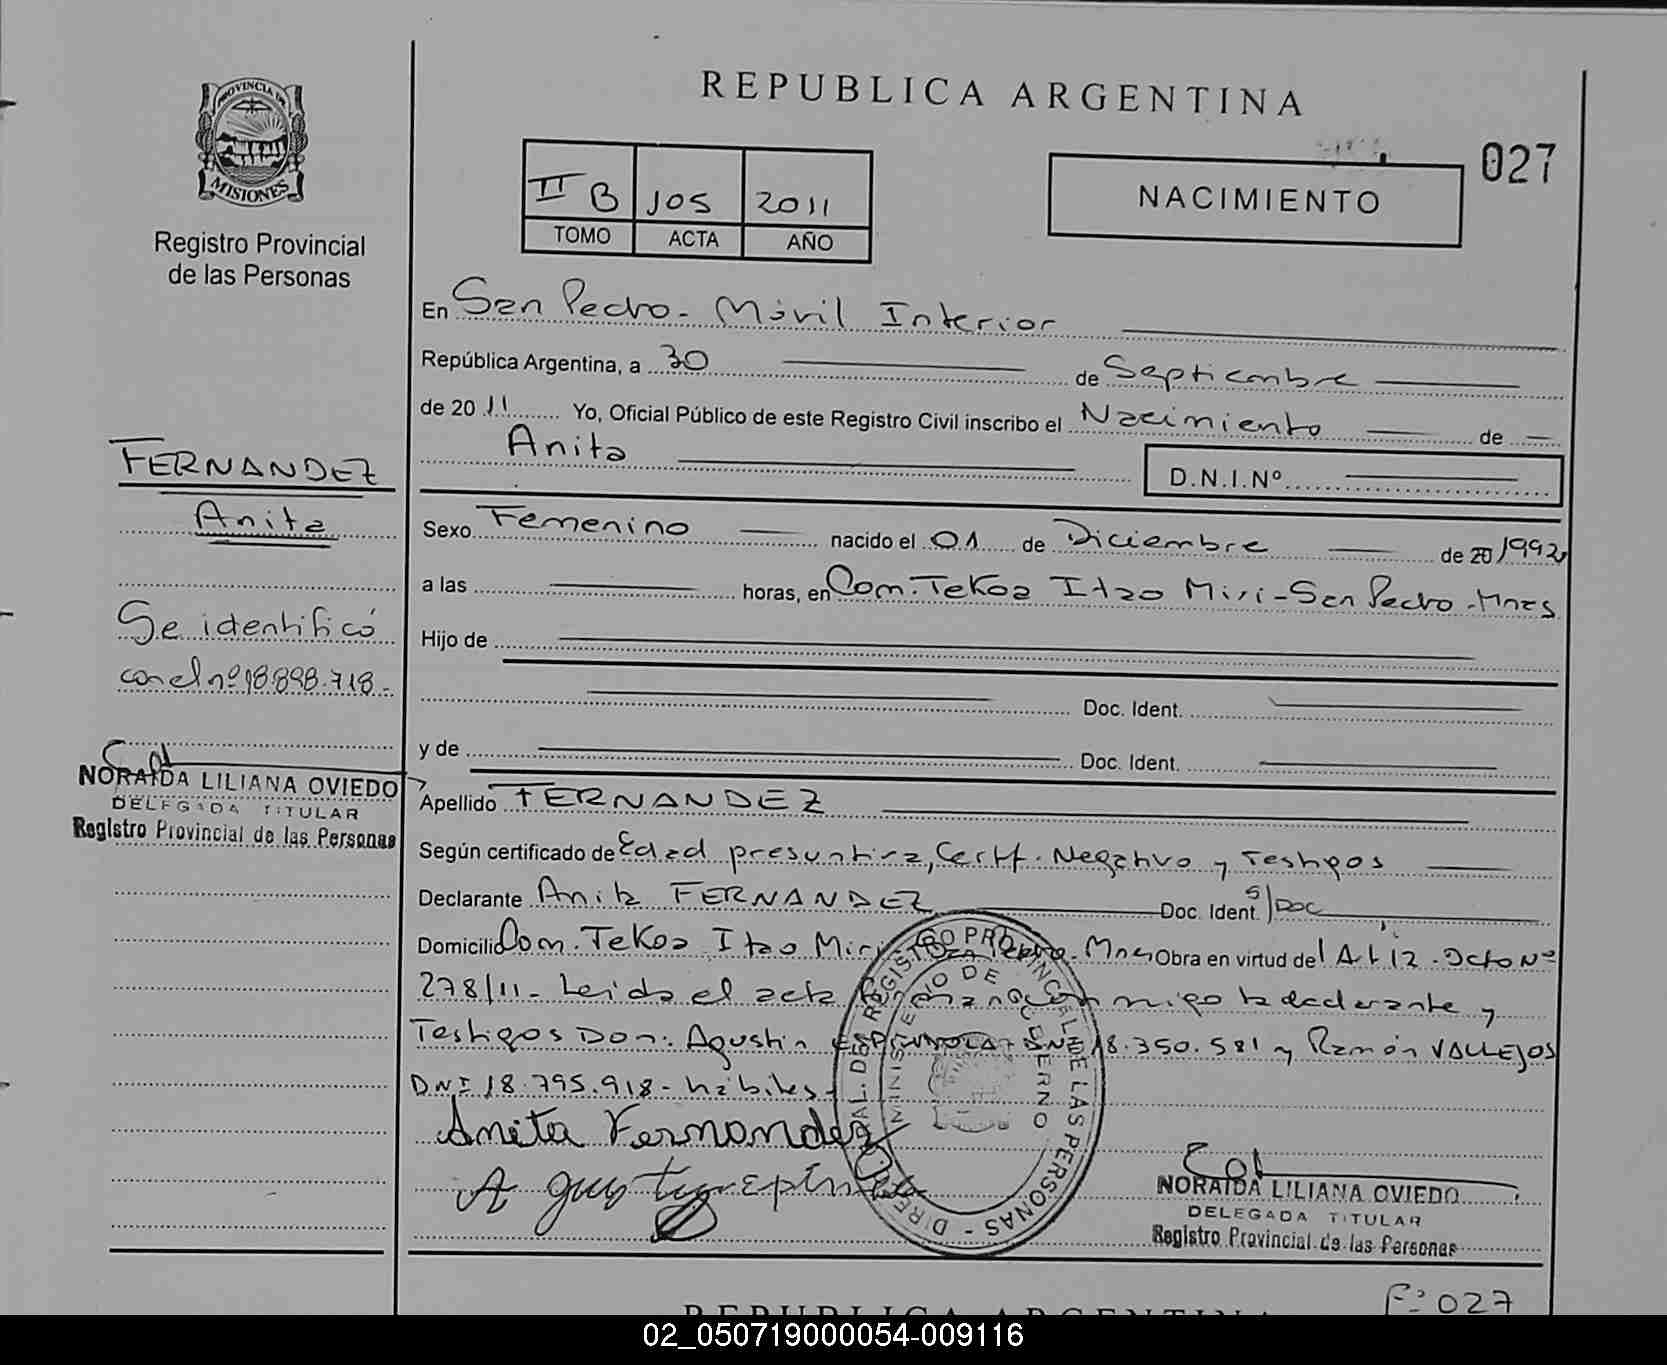 REPUBLICA ARGENTINA
PROVINCIA DE
MISIONES
Registro Provincial
de las Personas
II B 105 2011
TOMO ACTA AÑO
NACIMIENTO
027
En San Pedro - Móvil Interior
República Argentina, a 30 de Septiembre
de 20 11 Yo, Oficial Público de este Registro Civil inscribo el Nacimiento de
Anita D.N.I.Nº
Sexo Femenino nacido el 01 de Diciembre de 20 1992
a las horas, en Com. Tekoa Itao Miri - San Pedro - Mnes
Hijo de
Doc. Ident.
y de Doc. Ident.
Apellido FERNANDEZ
Según certificado de Edad presuntiva, Certf. Negativo y Testigos
Declarante Anita FERNANDEZ Doc. Ident. S/Doc
Domicilio Com. Tekoa Itao Miri San Pedro - Mnes Obra en virtud del Art 12 - Dcto Nº
278/11 - Leida el acta firman conmigo la declarante y
Testigos Don: Agustin ESPINDOLA - DNI 18.350.581 y Ramón VALLEJOS
DNI 18.795.918 - hábiles -
Anita Fernandez
NORAIDA LILIANA OVIEDO
DELEGADA TITULAR
Registro Provincial de las Personas
DIREC. GRAL. DEL REGISTRO PROVINCIAL DE LAS PERSONAS -
MINISTERIO DE GOBIERNO
FERNANDEZ
Anita
Se identificó
con el nº 18.898.718 -
NORAIDA LILIANA OVIEDO
DELEGADA TITULAR
Registro Provincial de las Personas
F: 027
REPUBLICA ARGENTINA
02_050719000054-009116